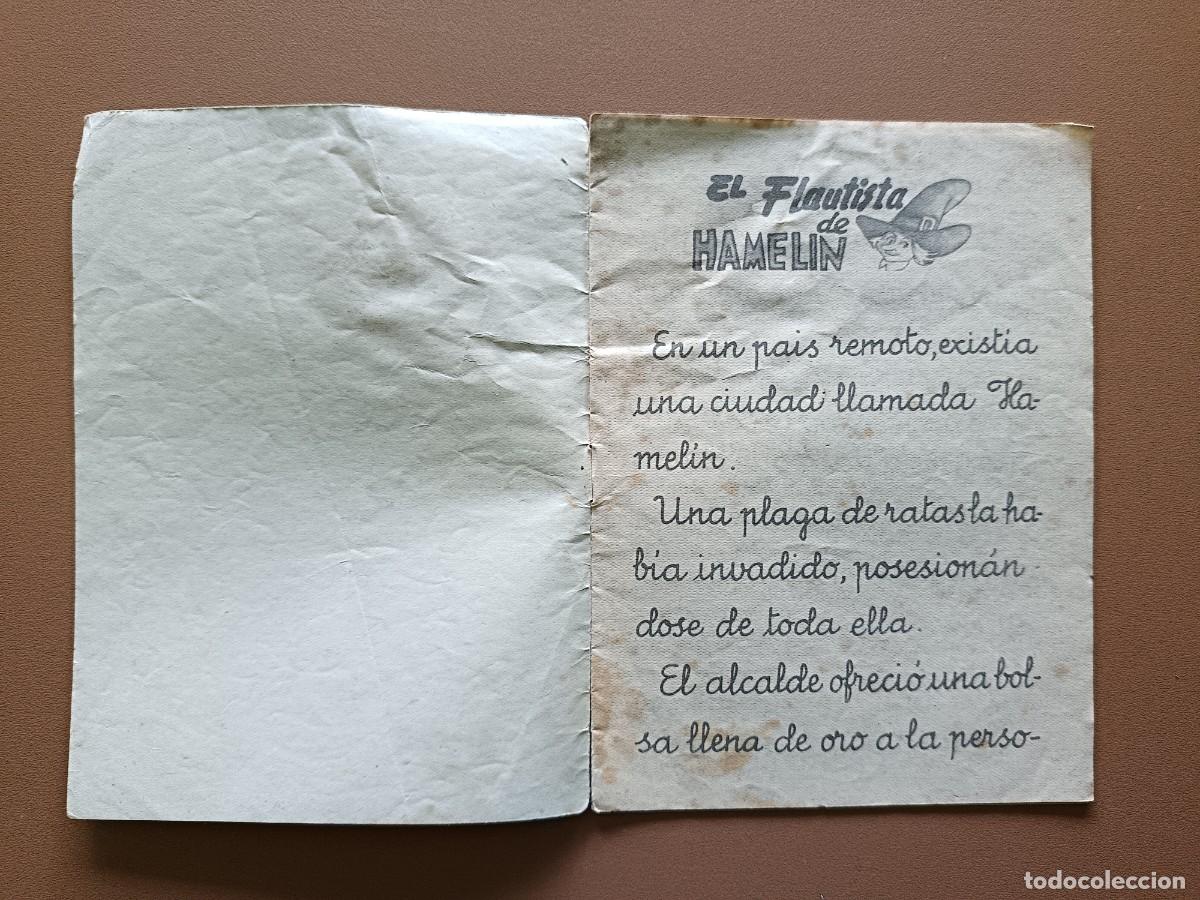 EL Flautista
de
HAMELIN
En un pais remoto, existía
una ciudad llamada Ha-
melín.
Una plaga de ratas la ha-
bía invadido, posesionán-
dose de toda ella.
El alcalde ofreció una bol-
sa llena de oro a la perso-
todocoleccion